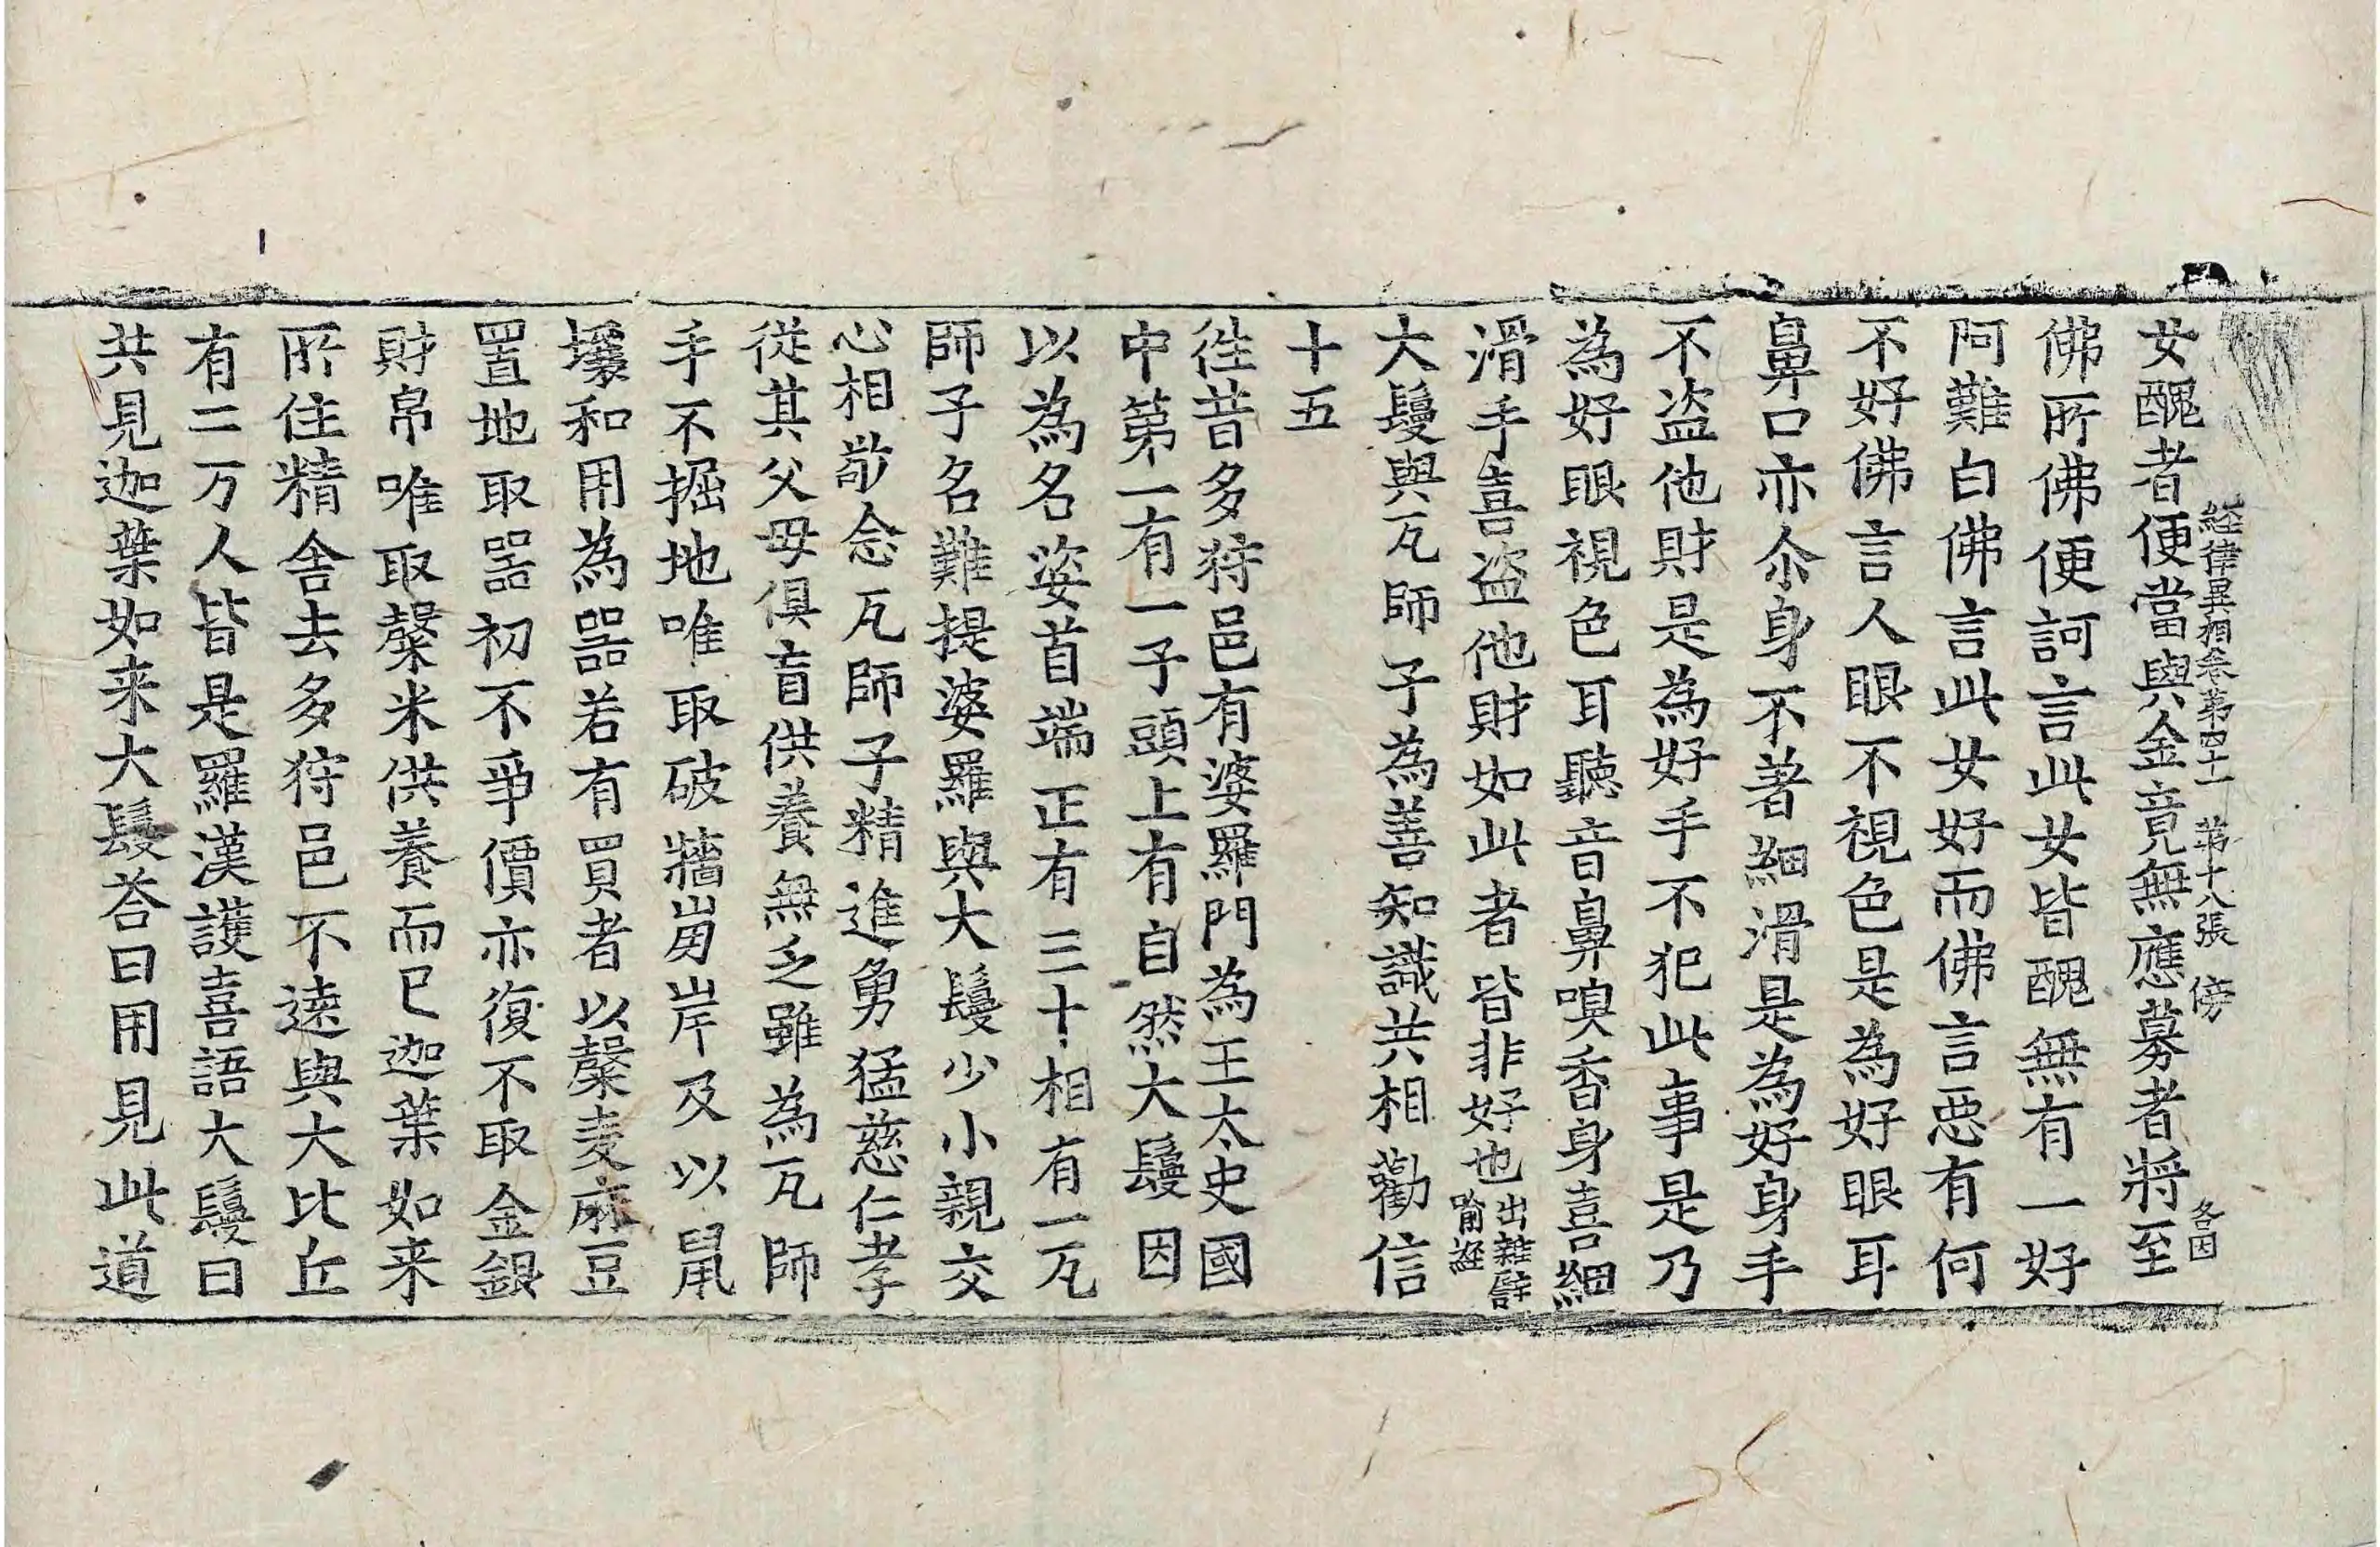 経律異相卷第四十一　第十八張　傍　各因
女醜者便當與金竟無應募者將至
佛所佛便訶言此女皆醜無有一好
阿難白佛言此女好而佛言惡有何
不好佛言人眼不視色是為好眼耳
鼻口亦尒身不著細滑是為好身手
不盜他財是為好手不犯此事是乃
為好眼視色耳聽音鼻嗅香身喜細
滑手喜盜他財如此者皆非好也出雜譬喻経
大鬘與瓦師子為善知識共相勸信
十五
徃昔多狩邑有婆羅門為王太史國
中第一有一子頭上有自然大鬘因
以為名姿首端正有三十相有一瓦
師子名難提婆羅與大鬘少小親交
心相敬念瓦師子精進勇猛慈仁孝
從其父母俱盲供養無乏雖為瓦師
手不掘地唯取破牆崩岸及以鼠
壤和用為器若有買者以糳麦麻豆
置地取器初不爭價亦復不取金銀
財帛唯取糳米供養而已迦葉如来
所住精舍去多狩邑不遠與大比丘
有二万人皆是羅漢護喜語大鬘曰
共見迦葉如来大鬘荅曰用見此道